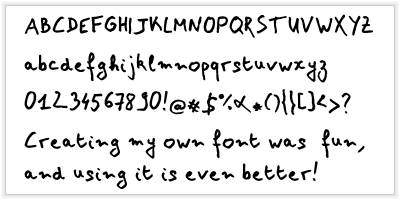 ABCDEFGHIJKLMNOPQRSTUVWXYZ
abcdefghijklmnopqrstuvwxyz
0123456789 0!@*$%&*(){}[]<>?
Creating my own font was fun,
and using it is even better!